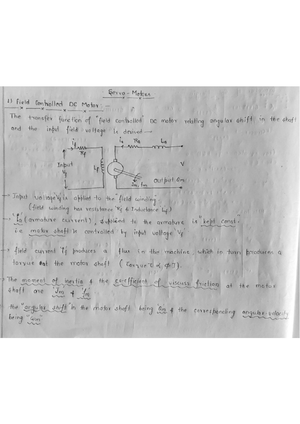 Servo-Motor
1) Field Controlled DC Motor :-
The transfer function of "field controlled DC motor relating angular shift in the shaft
and the input field voltage is derived —
Ra La
Rf
Input Lf V
Output θm
- Input voltage Vf is applied to the field winding.
(field winding has resistance Rf & Inductance Lf)
- Ia (armature current), supplied to the armature is "kept const.
i.e motor shaft is controlled by input voltage Vf
- field current If produces a flux in the machine, which in turn produces a
torque at the motor shaft (Torque
- The moment of inertia & the coefficient of viscous friction at the motor
shaft are "Jm & fm
- the "angular shift" in the motor shaft being θm & the corresponding angular velocity
being "ωm